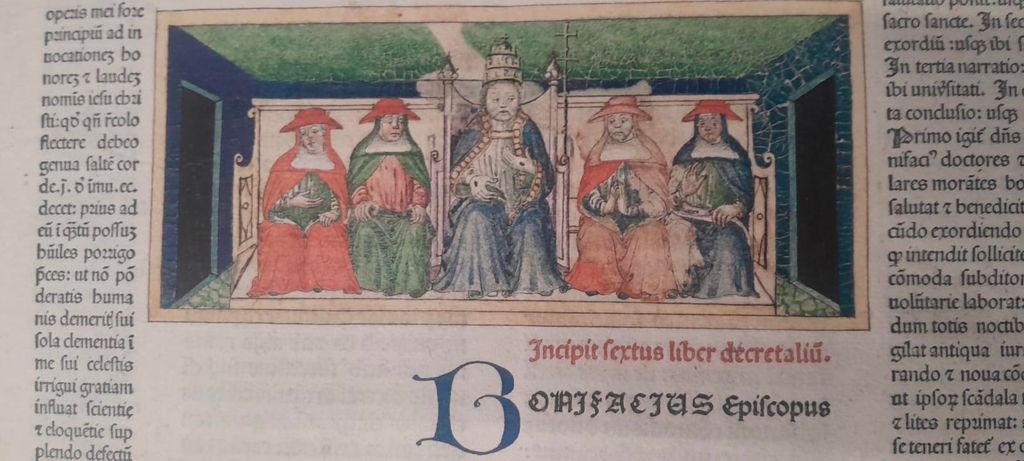 operis mei fore
principiū ad in
uocationeʒ bo
noreʒ ⁊ laudeʒ
nomis iesu chri
sti: qď qñ rcolo
flectere debeo
genua saltē cor
de. j. ď īmu. ec.
decet: prius ad
eū i q̄stū possuʒ
hūiles porrigo
p̄ces: ut nō pō
deratis huma
nis demeritʒ sui
sola clementia ī
me sui celestis
irrigui gratiam
influat scientię
⁊ eloquētie sup
plendo defectū
Incipit sextus liber decretaliū.
BONIFACIUS Episcopus
sacro sancte. In sec
exordiū: usqʒ ibi s
In tertia narratio:
ibi uniṽsitati. In
ta conclusio: usqʒ
Primo igit̄ dñs
nifacꝰ doctores ⁊
lares morātes bo
salutat ⁊ benedicit
cūdo exordiendo
ꝙ intendit sollicite
cōmoda subditor
uolūtarie laborat
dum totis noctib
gilat antiqua iur
rando ⁊ noua cō
ut ipsoꝝ scādala
⁊ lites reprimat:
se teneri fatet̄ ex